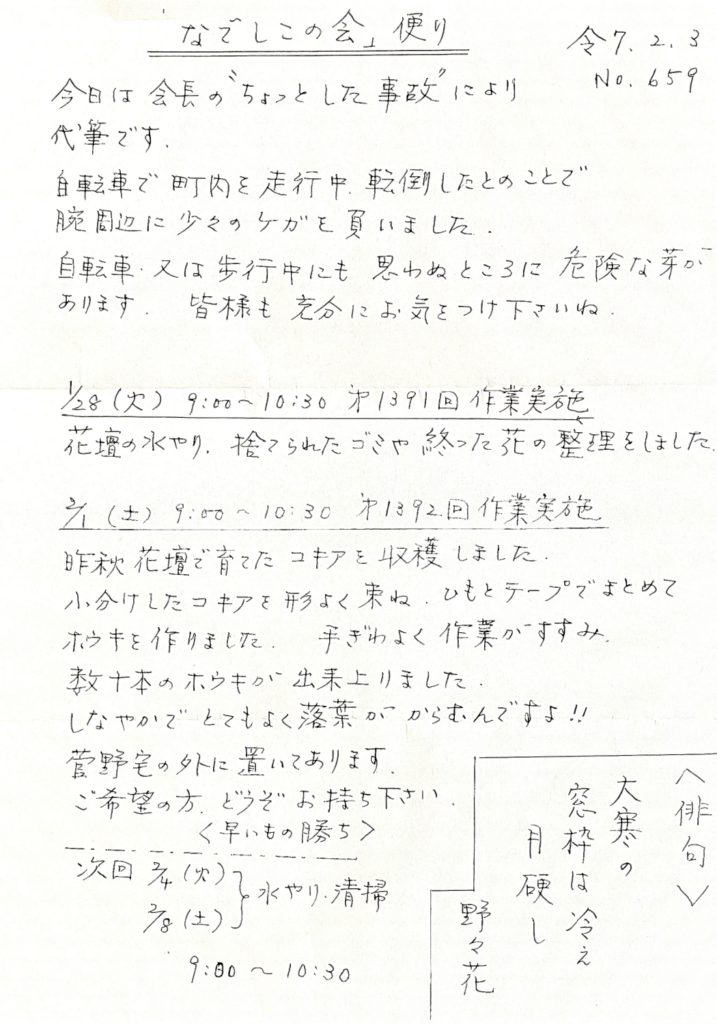 なでしこの会」便り
令7.2.3
No.659
今日は会長の“ちょっとした事故”により
代筆です.
自転車で町内を走行中.転倒したとのことで
腕周辺に少々のケガを負いました.
自転車.又は歩行中にも思わぬところに危険な芽が
あります. 皆様も充分にお気をつけ下さいね.
1/28(火) 9:00〜10:30 㐧1391回作業実施
花壇の水やり.捨てられたゴミや終った花の整理をしました.
2/1(土) 9:00〜10:30 㐧1392回作業実施
昨秋花壇で育てたコキアを収穫しました.
小分けしたコキアを形よく束ね.ひもとテープでまとめて
ホウキを作りました. 手ぎわよく作業がすすみ.
数十本のホウキが出来上りました.
しなやかでとてもよく落葉がからむんですよ!!
菅野宅の外に置いてあります.
ご希望の方.どうぞお持ち下さい.
<早いもの勝ち>
次回 2/4(火)
2/8(土)
水やり.清掃
9:00〜10:30
<俳句>
大寒の
窓枠は冷え
月硬し
野々花